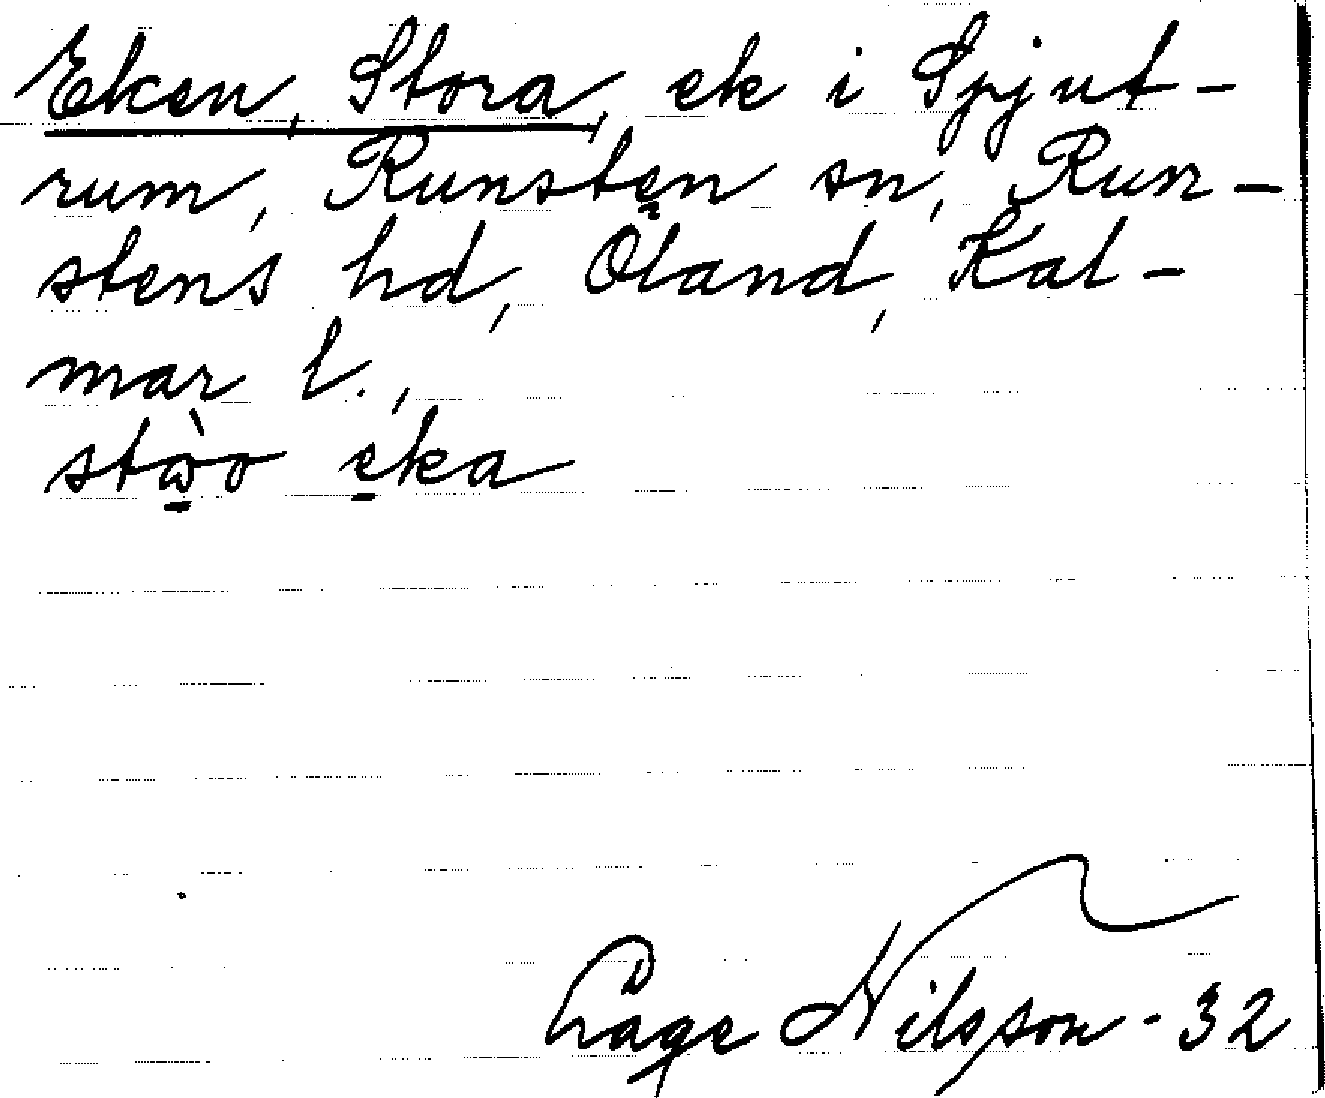 Eken, Stora, ek i Spjut-
rum, Runsten sn, Run-
stens hd, Öland, Kal-
mar l.,
eka
Nilsson - 32